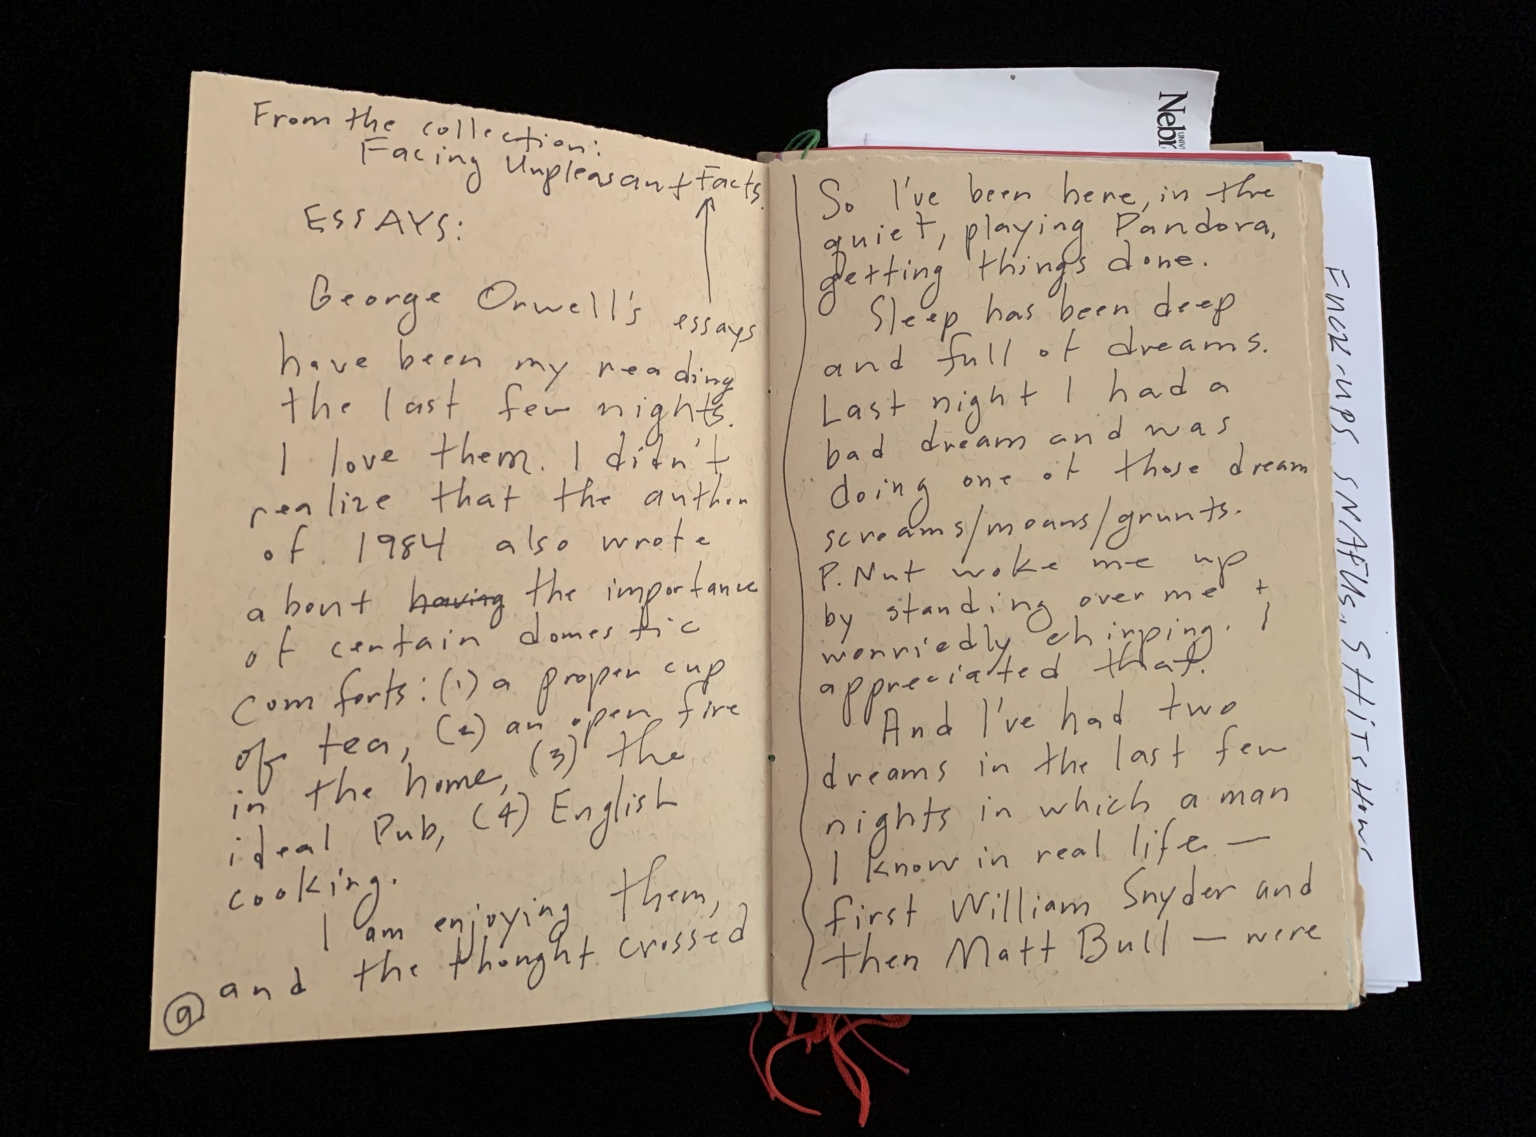 From the collection:
Facing Unpleasant Facts.
ESSAYS:
George Orwell's essays
have been my reading
the last few nights.
I love them. I didn't
realize that the author
of 1984 also wrote
about having the importance
of certain domestic
comforts: (1) a proper cup
of tea, (2) an open fire
in the home, (3) the
ideal Pub, (4) English
cooking.
I am enjoying them,
and the thought crossed
a
So I've been here, in the
quiet, playing Pandora,
getting things done.
Sleep has been deep
and full of dreams.
Last night I had a
bad dream and was
doing one of those dream
screams/moans/grunts.
P. Nut woke me up
by standing over me +
worriedly chirping. I
appreciated that.
And I've had two
dreams in the last few
nights in which a man
I know in real life —
first William Snyder and
then Matt Bull — were
Nebr
UNIV
FUCK-UPS, SNAFUs, SHITSHOWS